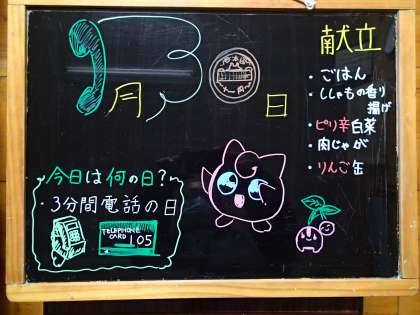 献立
月 日
・ごはん
・ししゃもの香り
揚げ
・ピリ辛白菜
・肉じゃが
・りんご缶
今日は何の日?
・3分間電話の日
TELEPHONE
CARD 105